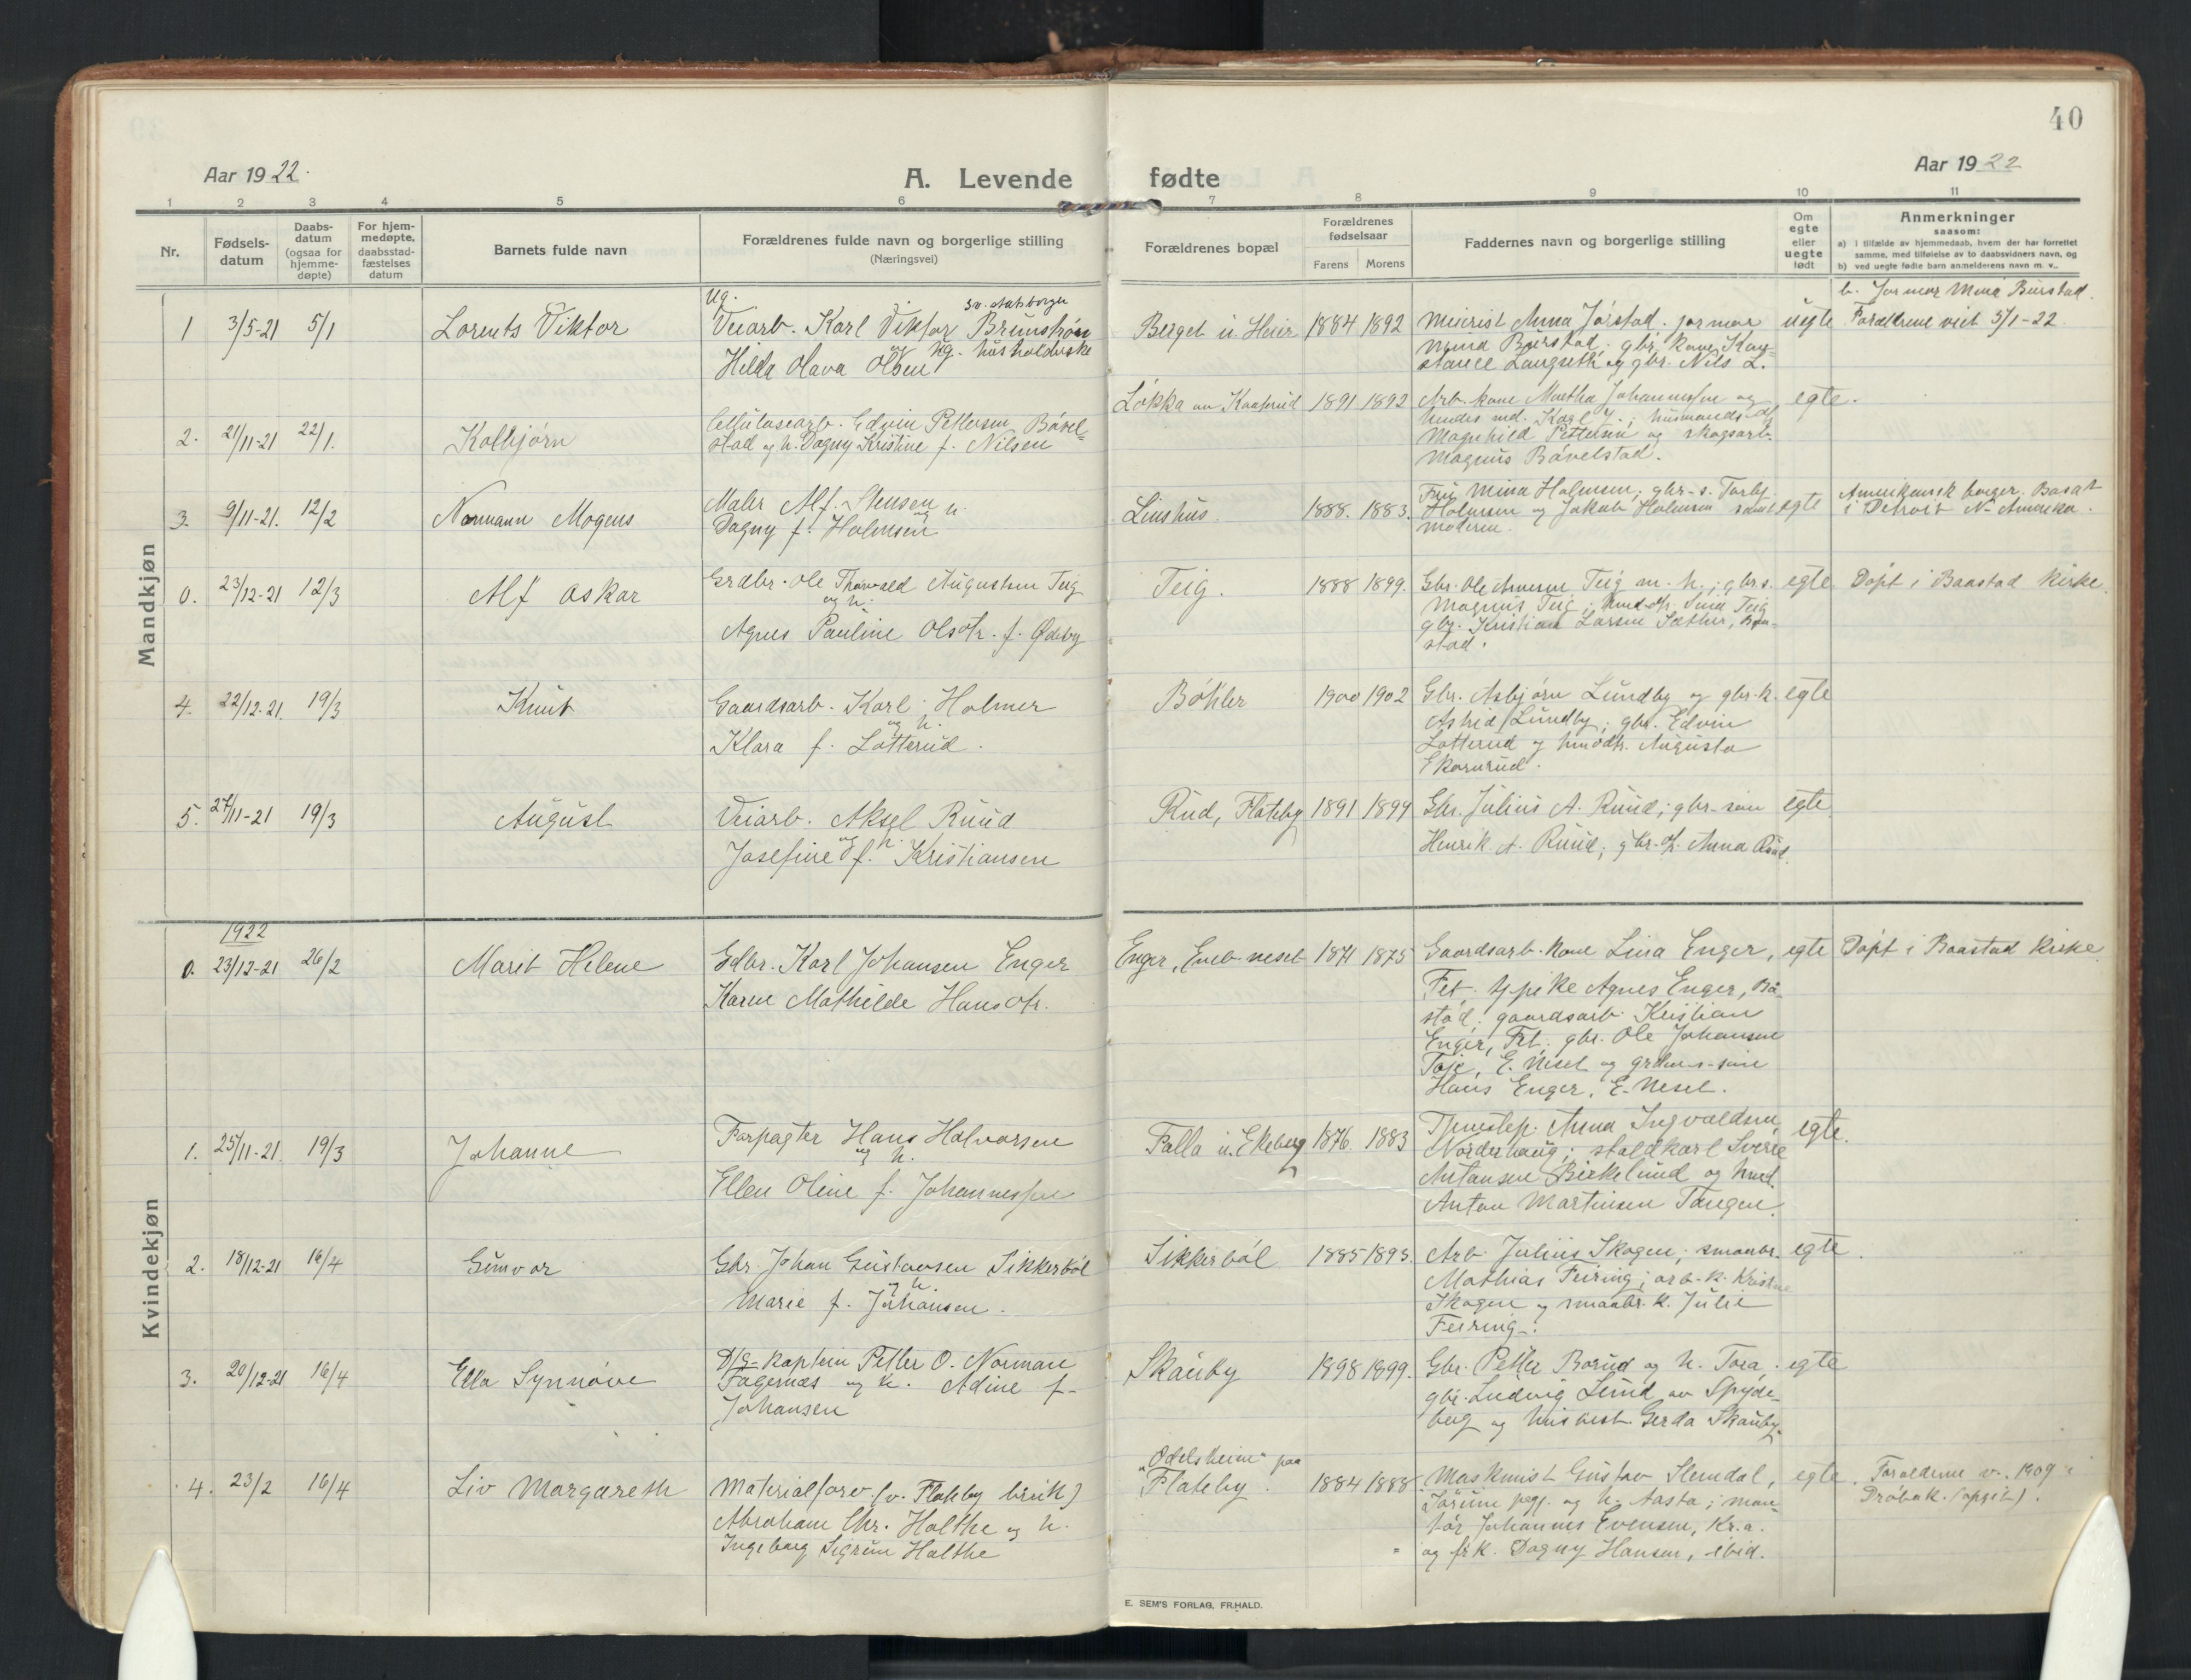 40
Aar 1922.
A. Levende fødte
Aar 1922
1 2 3 4 5 6 7 8 9 10 11
Nr.
Fødsels-
datum
Daabs-
datum
(ogsaa for
hjemme-
døpte)
For hjem-
medøpte,
daabsstad-
fæstelses
datum
Barnets fulde navn
Forældrenes fulde navn og borgerlige stilling
(Næringsvei)
Forældrenes bopæl
Forældrenes
fødselsaar
Farens Morens
Faddernes navn og borgerlige stilling
Om
egte
eller
uegte
født
Anmerkninger
saasom:
a) i tilfælde av hjemmedaab, hvem der har forrettet
samme, med tilføielse av to daabsvidners navn, og
b) ved uegte fødte barn anmelderens navn m. v..
Mandkjøn
1 3/5-21 5/1 Lorents Viktor
Ug. sv. statsborger
Veiarb. Karl Viktor Brunstrøm
og ug. husholderske
Hilda Olava Olsen
Berget u. Heier 1884 1892
Meierist Anna Jørstad; jormor
Mina Burstad; gbr. kone Kon-
stance Langseth og gbr. Nils L.
uegte
b. Jormor Mina Burstad.
Forældrene viet 5/1-22.
2. 21/11-21 22/1. Kolbjørn
Cellulosearb. Edvin Pettersen Båvel-
stad og h. Dagny Kristine f. Nilsen
Løkka av Kaaterud 1891 1892
Arb. kone Martha Johannessen og
hendes md. Karl J.; husmands-dt.
Magnhild Pettersen og skogsarb.
Magnus Båvelstad.
egte.
3. 9/11-21. 12/2 Normann Mogens
Maler Alf Stensen og h.
Dagny f. Holmsen
Linshus. 1888. 1883.
Fru Mina Holmsen; gbr-s. Torbj.
Holmsen og Jakob Holmsen samt
moderen.
egte
Amerikansk borger. Bosat
i Detroit N. Amerika.
0. 23/12-21 12/3 Alf Oskar
Grdbr. Ole Thorvald Augustsen Teig
og h.
Agnes Pauline Olsdtr. f. Ødeby
Teig. 1888 1899.
Gbr. Ole Amersen Teig m. h.; gbr.s.
Magnus Teig; Teig
gbr. Kristian Larsen Sæther, Baa-
stad.
egte
Døpt i Baastad kirke.
4. 22/12-21. 19/3 Knut
Gaardsarb. Karl Holmer
og h.
Klara f. Lotterud.
Bøhler 1900 1902
Gbr. Asbjørn Lundby og gbr.k.
Astrid Lundby; gbr. Edvin
Lotterud og hmdtr. Augusta
Ekornrud.
egte
5. 27/11-21 19/3 August
Veiarb. Aksel Ruud
og h.
Josefine f. Kristiansen
Rud, Flateby 1891 1899
Gbr. Julius A. Ruud; gbr-søn
Henrik A. Ruud; gbr. dt. Anna Ruud.
egte
Kvindekjøn
1922
0. 23/12-21 26/2 Marit Helene
Gdbr. Karl Johansen Enger
Karen Mathilde Hansdtr.
Enger, Eneb.neset 1871 1875
Gaardsarb. kone Lina Enger,
Fet. tj. pike Agnes Enger, Bå-
stad; gaardsarb. Kristian
Enger, Fet; gbr. Ole Johansen
Toje, E. neset og søn
Hans Enger, E-neset.
egte
Døpt i Baastad kirke.
1. 25/11-21. 19/3 Johanne
Forpagter Hans Halvorsen
og h.
Ellen Oline f. Johannessen
Falla u. Ekeberg 1876. 1883
Tjenestep. Anna Ingvaldsen
Norderhaug; staldkarl Sverre
Antonsen Birkelund og hmd.
Anton Martinsen Tangen.
egte.
2. 18/12-21 16/4 Gunvor
Gbr. Johan Gustavsen Sikkerbøl
og h.
Marie f. Johansen.
Sikkerbøl 1885 1893.
Arb. Julius Skogen; smaabr.
Mathias Feiring; arb.-k. Kristine
Skogen og smaabr.k. Julie
Feiring.
egte.
3. 20/12-21 16/4 Ella Synnøve
D/S-kaptein Petter O. Norman
Fagernæs og h. Adine f.
Johansen
Skauby 1898 1899.
Gbr. Petter Borud og h. Tora;
gbr. Ludvig Lund av Spyde-
berg og husbest. Gerda Skauby.
egte
4. 23/2 16/4 Liv Margareth
Materialforv. (v. Flateby bruk)
Abraham Chr. Holthe og h.
Ingeborg Sigrun Holthe
"Odelsheim" paa
Flateby. 1884 1888
Maskinist Gustav Stendal,
og h. Aasta; mon-
tør Johannes Evensen, Kr.a.
og frk. Dagny Hansen, ibid.
egte.
Forældrene v. 1909 i
Drøbak. (opgit).
E. SEM'S FORLAG, FR.HALD.